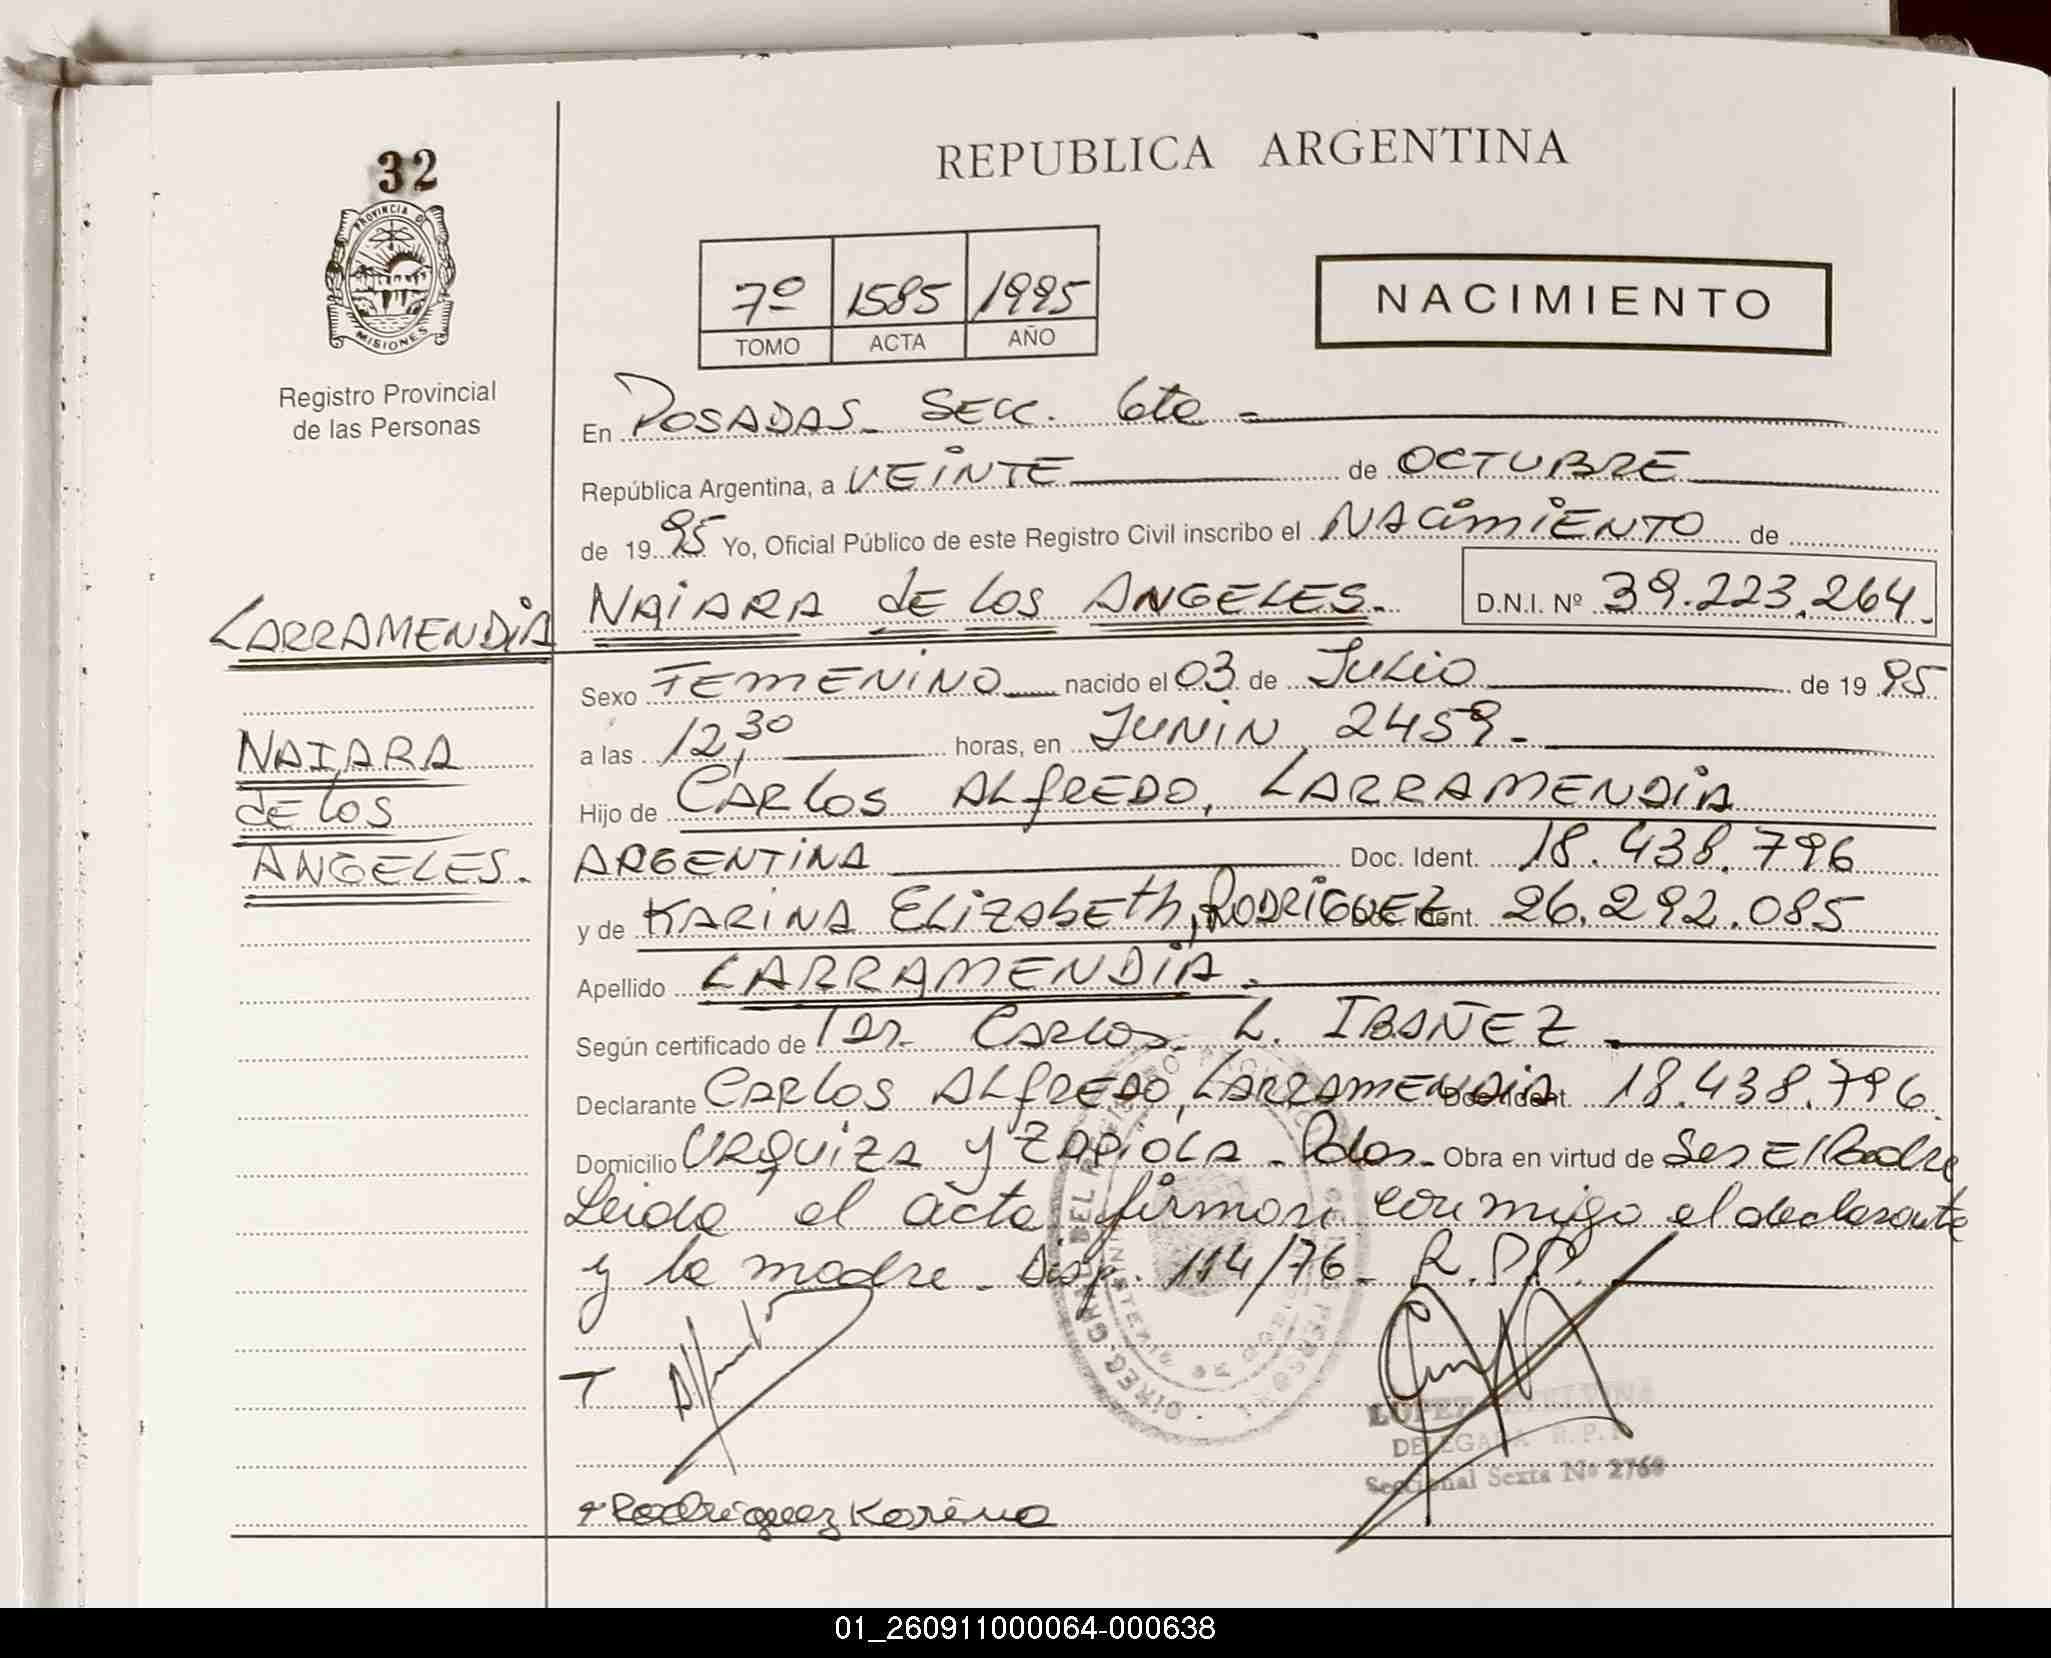 32
PROVINCIA DE
MISIONES
Registro Provincial
de las Personas
REPUBLICA ARGENTINA
7º 1585 1995
TOMO ACTA AÑO
NACIMIENTO
En POSADAS - SECC. 6ta -
República Argentina, a VEINTE de OCTUBRE
de 1995 Yo, Oficial Público de este Registro Civil inscribo el NACIMIENTO de
NAIARA de los ANGELES. D.N.I. Nº 39.223.264.-
LARRAMENDIA
NAIARA
de los
ANGELES.
Sexo FEMENINO nacido el 03 de JULIO de 1995
a las 12,30 horas, en JUNIN 2459 -
Hijo de CARLOS ALFREDO, LARRAMENDIA
ARGENTINA Doc. Ident. 18.438.796
y de KARINA ELIZABETH, RODRIGUEZ Doc. Ident. 26.292.085
Apellido LARRAMENDIA.-
Según certificado de Dr. Carlos L. IBAÑEZ
Declarante CARLOS ALFREDO, LARRAMENDIA Doc. Ident. 18.438.796
Domicilio URQUIZA y ZAPIOLA - Pdas - Obra en virtud de Ser El Padre
Leida el acta firman conmigo el declarante
y la madre - Disp. 114/76 - R.P.P.
Rodriguez Karina
LOPEZ ETELVINA
DELEGADA R.P.P.
Seccional Sexta Nº 2768
01_260911000064-000638